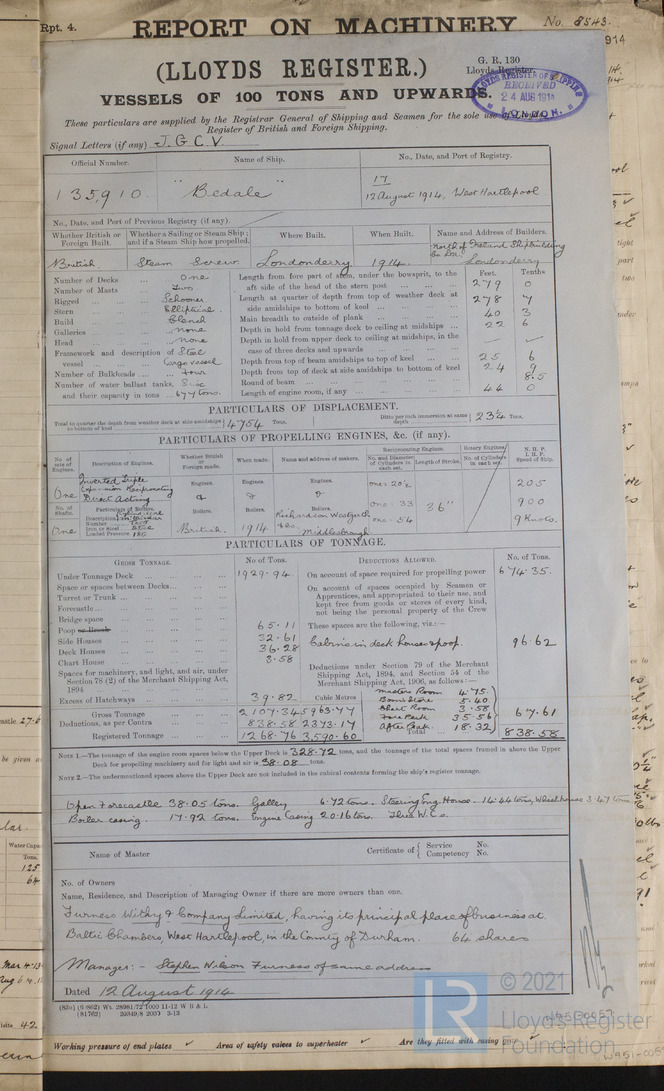 Rpt. 4.
REPORT ON MACHINERY
No. 8543.
914
(LLOYDS REGISTER.)
G. R. 130
Lloyds Register.
VESSELS OF 100 TONS AND UPWARDS.
LLOYD'S REGISTER OF SHIPPING
RECEIVED
24 AUG 1914
LONDON.
These particulars are supplied by the Registrar General of Shipping and Seamen for the sole use of Lloyd's
Register of British and Foreign Shipping.
Signal Letters (if any) J.G.C.V.
Official Number. Name of Ship. No., Date, and Port of Registry.
135,910 "Bedale" 17
12 August 1914, West Hartlepool
No., Date, and Port of Previous Registry (if any).
Whether British or Foreign Built. Whether a Sailing or Steam Ship; and if a Steam Ship how propelled. Where Built. When Built. Name and Address of Builders.
British Steam Screw Londonderry 1914 North of Ireland Shipbuilding Co. Ltd. Londonderry
Number of Decks One
Number of Masts Two
Rigged Schooner
Stern Elliptical
Build Clench
Galleries none
Head none
Framework and description of vessel Steel Cargo vessel
Number of Bulkheads Four
Number of water ballast tanks, and their capacity in tons 677 tons.
Feet. Tenths
Length from fore part of stem, under the bowsprit, to the aft side of the head of the stern post 279 0
Length at quarter of depth from top of weather deck at side amidships to bottom of keel 278 7
Main breadth to outside of plank 40 3
Depth in hold from tonnage deck to ceiling at midships 22 6
Depth in hold from upper deck to ceiling at midships, in the case of three decks and upwards
Depth from top of beam amidships to top of keel 25 6
Depth from top of deck at side amidships to bottom of keel 24 9
Round of beam 8.5
Length of engine room, if any 44 0
PARTICULARS OF DISPLACEMENT.
Total to quarter the depth from weather deck at side amidships to bottom of keel 4754 Tons. Ditto per inch immersion at same depth 23½ Tons.
PARTICULARS OF PROPELLING ENGINES, &c. (if any).
No. of sets of Engines. Description of Engines. Whether British or Foreign made. When made. Name and address of makers. Reciprocating Engines. No. and Diameter of Cylinders in each set. Length of Stroke. Rotary Engines. No. of Cylinders in each set. N.H.P. I.H.P. Speed of Ship.
One Inverted Triple Expansion Reciprocating Direct Acting
Engines. Engines. Engines. one 20½ 205
& & &
No. of Shafts. Particulars of Boilers. Boilers. Boilers. Boilers. one 33 36" 900
Description
Number Two
Iron or Steel Steel
Loaded Pressure 180
One British. 1914 Richardson Westgarth & Co. Middlesbrough one 54 9 Knots.
PARTICULARS OF TONNAGE.
GROSS TONNAGE. No. of Tons. DEDUCTIONS ALLOWED. No. of Tons.
Under Tonnage Deck 1929.94
Space or spaces between Decks
Turret or Trunk
Forecastle
Bridge space
Poop or Break 65.11
Side Houses 32.61
Deck Houses 36.28
Chart House 3.58
Spaces for machinery, and light, and air, under Section 78 (2) of the Merchant Shipping Act, 1894
Excess of Hatchways 39.82 Cubic Metres
Gross Tonnage 2107.34 5963.77
Deductions, as per Contra 838.58 2373.17
Registered Tonnage 1268.76 3590.60
On account of space required for propelling power 674.35.
On account of spaces occupied by Seamen or Apprentices, and appropriated to their use, and kept free from goods or stores of every kind, not being the personal property of the Crew
These spaces are the following, viz:—
Cabins in deck houses & poop. 96.62
Deductions under Section 79 of the Merchant Shipping Act, 1894, and Section 54 of the Merchant Shipping Act, 1906, as follows:—
Masters Room 4.75
Boatn Store 5.40
Chart Room 3.58
Fore Peak 35.56
After Peak. 18.32 67.61
Total 838.58
NOTE 1.—The tonnage of the engine room spaces below the Upper Deck is 328.72 tons, and the tonnage of the total spaces framed in above the Upper
Deck for propelling machinery and for light and air is 38.08 tons.
NOTE 2.—The undermentioned spaces above the Upper Deck are not included in the cubical contents forming the ship's register tonnage.
Open Forecastle 38.05 tons. Galley 6.72 tons. Steering Eng. House 14.44 tons, Wheelhouse 3.47 tons
Boiler casing. 17.92 tons. Engine Casing 20.16 tons. Three W.Cs.
Name of Master Certificate of Service No.
Competency No.
No. of Owners
Name, Residence, and Description of Managing Owner if there are more owners than one.
Furness Withy & Company Limited, having its principal place of business at
Baltic Chambers, West Hartlepool, in the County of Durham. 64 shares
Manager:- Stephen Wilson Furness of same address
Dated 12 August 1914
© 2021
Lloyd's Register
Foundation
W951-0057
Working pressure of end plates Area of safety valves to superheater Are they fitted with easing gear